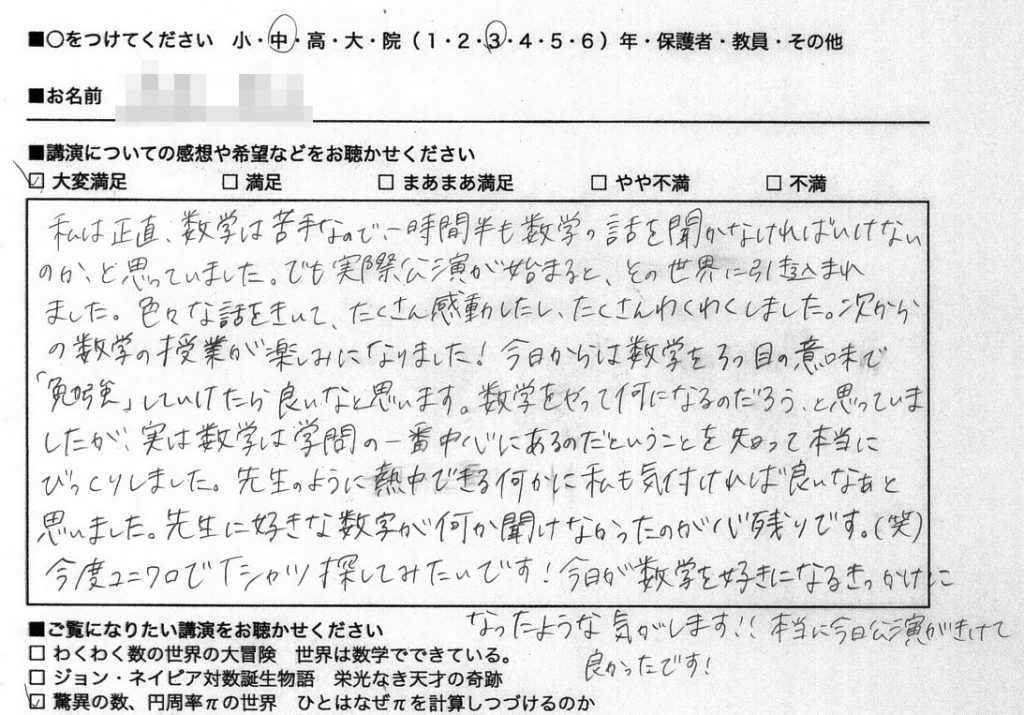 ■○をつけてください 小・中・高・大・院（1・2・3・4・5・6）年・保護者・教員・その他
■お名前
■講演についての感想や希望などをお聴かせください
☑ 大変満足 □ 満足 □ まあまあ満足 □ やや不満 □ 不満
私は正直、数学は苦手なので、一時間半も数学の話を聞かなければいけない
のか、と思っていました。でも実際公演が始まると、その世界に引き込まれ
ました。色々な話をきいて、たくさん感動したし、たくさんわくわくしました。次から
の数学の授業が楽しみになりました！今日からは数学を3つ目の意味で
「勉強」していけたら良いなと思います。数学をやって何になるのだろう、と思っていま
したが、実は数学は学問の一番中心にあるのだということを知って本当に
びっくりしました。先生のように熱中できる何かに私も気付ければ良いなぁと
思いました。先生に好きな数字が何か聞けなかったのが心残りです。（笑）
今度ユニクロでTシャツ探してみたいです！今日が数学を好きになるきっかけに
なったような気がします！！本当に今日公演がきけて
良かったです！
■ご覧になりたい講演をお聴かせください
□ わくわく数の世界の大冒険 世界は数学でできている。
□ ジョン・ネイピア対数誕生物語 栄光なき天才の奇跡
☑ 驚異の数、円周率πの世界 ひとはなぜπを計算しつづけるのか